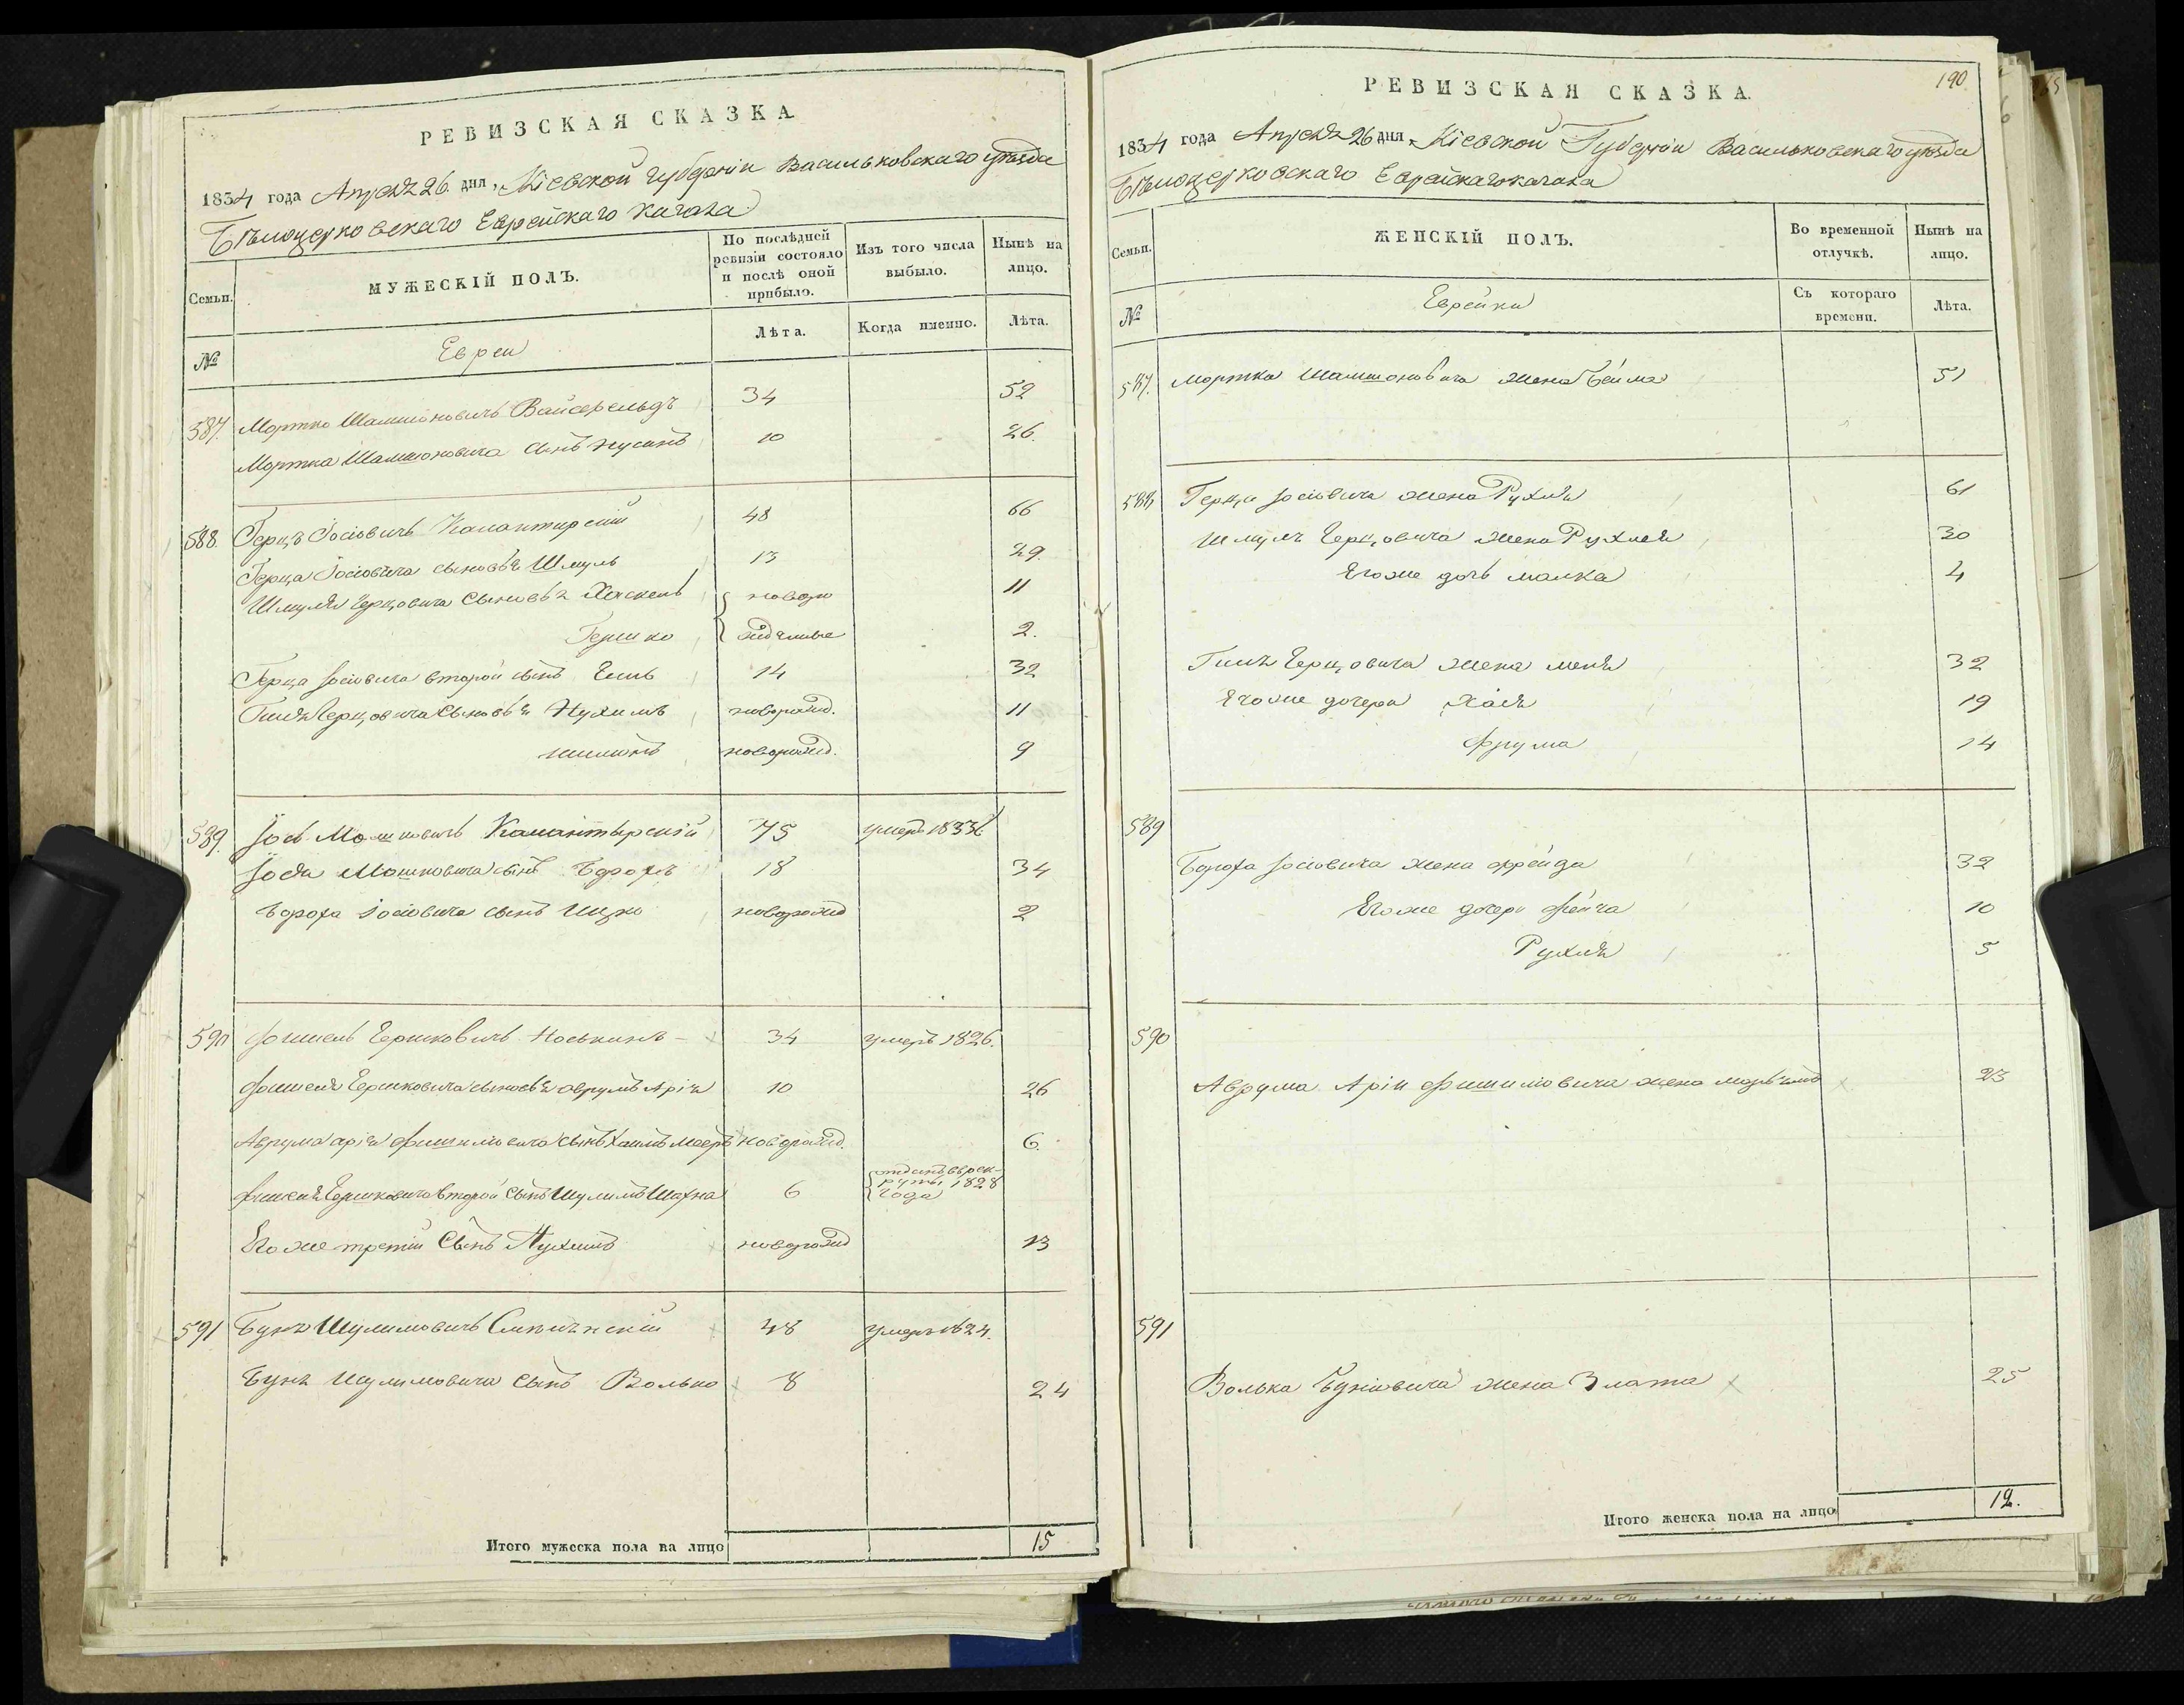 РЕВИЗСКАЯ СКАЗКА
1834 года Апреля 26 дня, Кіевской губерніи Васильковскаго уѣзда
Бѣлоцерковскаго Еврейскаго Кагала
Семьи.
МУЖЕСКІЙ ПОЛЪ.
По послѣдней ревизіи состояло и послѣ оной прибыло.
Изъ того числа выбыло.
Нынѣ на лицо.
№
Евреи
Лѣта.
Когда именно.
Лѣта.
587. Мортко Шамшоновичъ Вайсфельдъ 34 52
Мортка Шамшоновича сынъ Нусинъ 10 26.
588. Герцъ Іосіовичъ Калантирскій 48 66
Герца Іосіовича сыновья Шмуль 13 29.
Шмуля Герцовича сыновья Хаскель новоро 11
Гершко жденные 2.
Герца Іосіовича второй сынъ 14 32
Герцовича сыновья Нухимъ новорожд. 11
новорожд. 9
589. Іось Мошковичъ Калантырскій 75 умеръ 1833
Іося Мошковича сынъ Борохъ 18 34
Бороха Іосіовича сынъ Ицко новорожд 2
590 Фишель Гершковичъ Носькинъ 34 умеръ 1826.
Фишеля Гершковича сыновья Аврумъ Арія 10 26
Аврума Арія Фишиліовича сынъ Хаимъ Мееръ новорожд. 6.
Фишеля Гершковича второй сынъ Шулимъ Шахна 6 отданъ въ рекруты 1828 года
Его же третій сынъ Нухимъ новорожд 13
591 Бунъ Шулимовичъ 48 умеръ 1824.
Буня Шулимовича сынъ Волько 8 24
Итого мужеска пола на лицо 15
190.
РЕВИЗСКАЯ СКАЗКА.
1834 года Апреля 26 дня, Кіевской Губерніи Васильковскаго уѣзда
Бѣлоцерковскаго Еврейскаго кагала
Семьи.
ЖЕНСКІЙ ПОЛЪ.
Во временной отлучкѣ.
Нынѣ на лицо.
№
Еврейки
Съ котораго времени.
Лѣта.
587. Мортка Шамшоновича жена Бейла 51
588 Герца Іосіовича жена Рухля 61
Шмуля Герцовича жена Рухля 30
Его же дочь Малка 4
Герцовича жена 32
Его же дочери Хая 19
Фрума 14
589
Бороха Іосіовича жена Фрейда 32
Его же дочери Фейга 10
Рухля 5
590
Аврума Арія Фишиліовича жена 23
591
Волька Буніовича жена Злата 25
Итого женска пола на лицо 12.